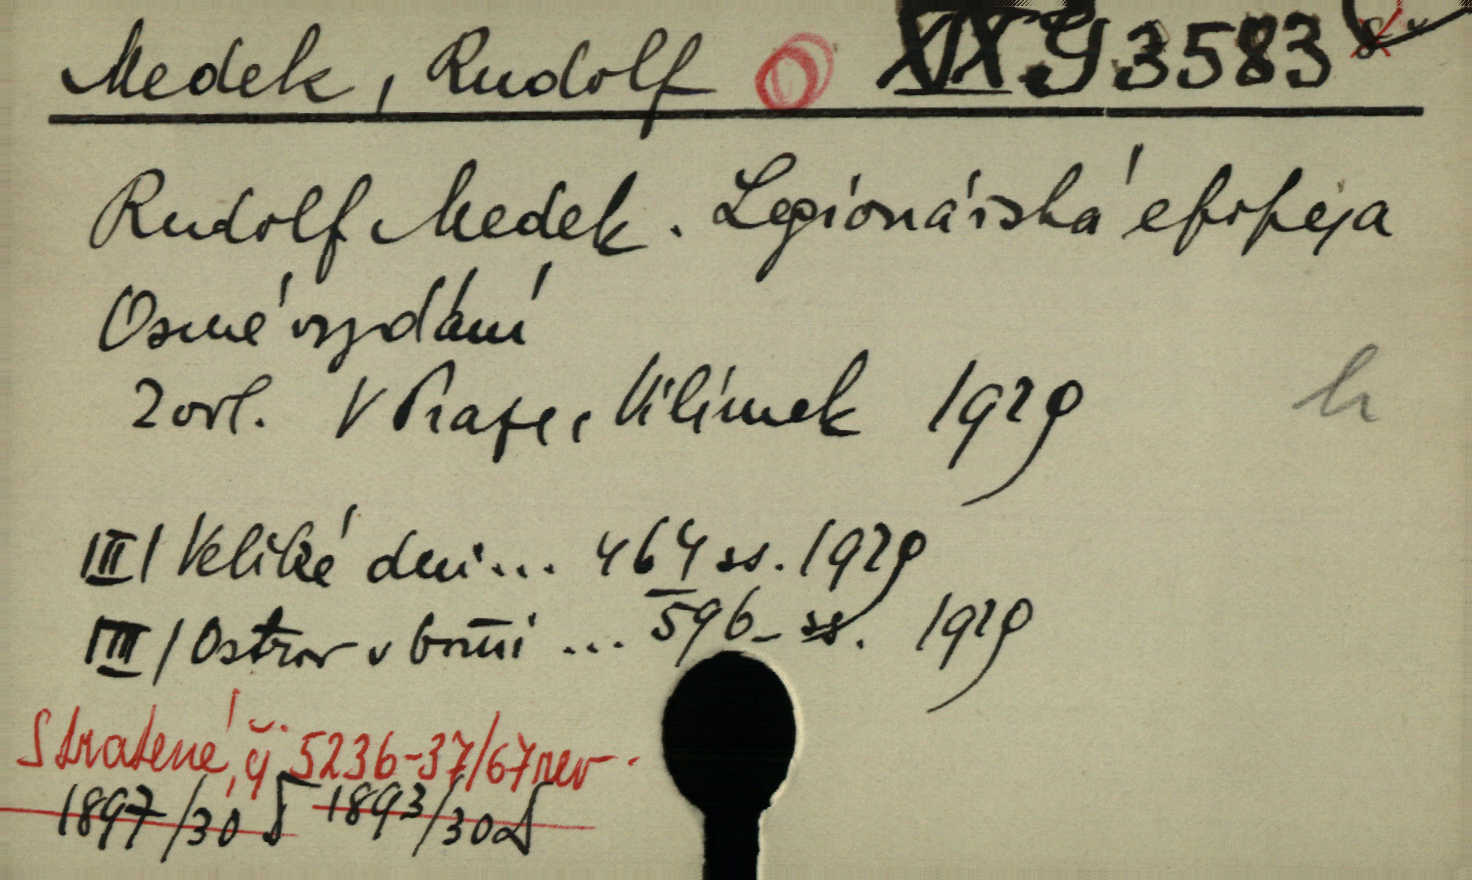 Medek, Rudolf XIX.G 3583
Rudolf Medek. Legionárská epopeja
Osmé vydání
2 ovl. V Praze, Vilímek 1929
h
II / Veliké dni... 464 ss. 1929
III / Ostrov v bouři ... 596 ss. 1929
Stratené, čj. 5236-37/67 rev.
1897/30 1893/30